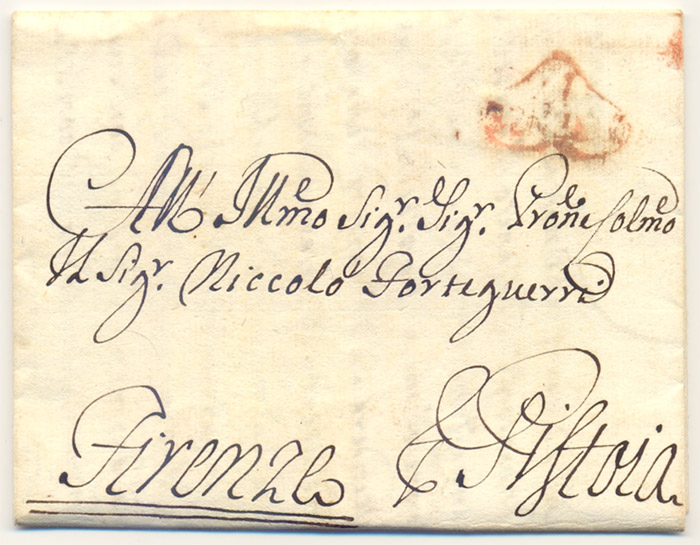 All' Illmo Sigr. Sigr. Prone Colmo
Il Sigr. Niccolo Forteguerri
Firenze P Pistoia